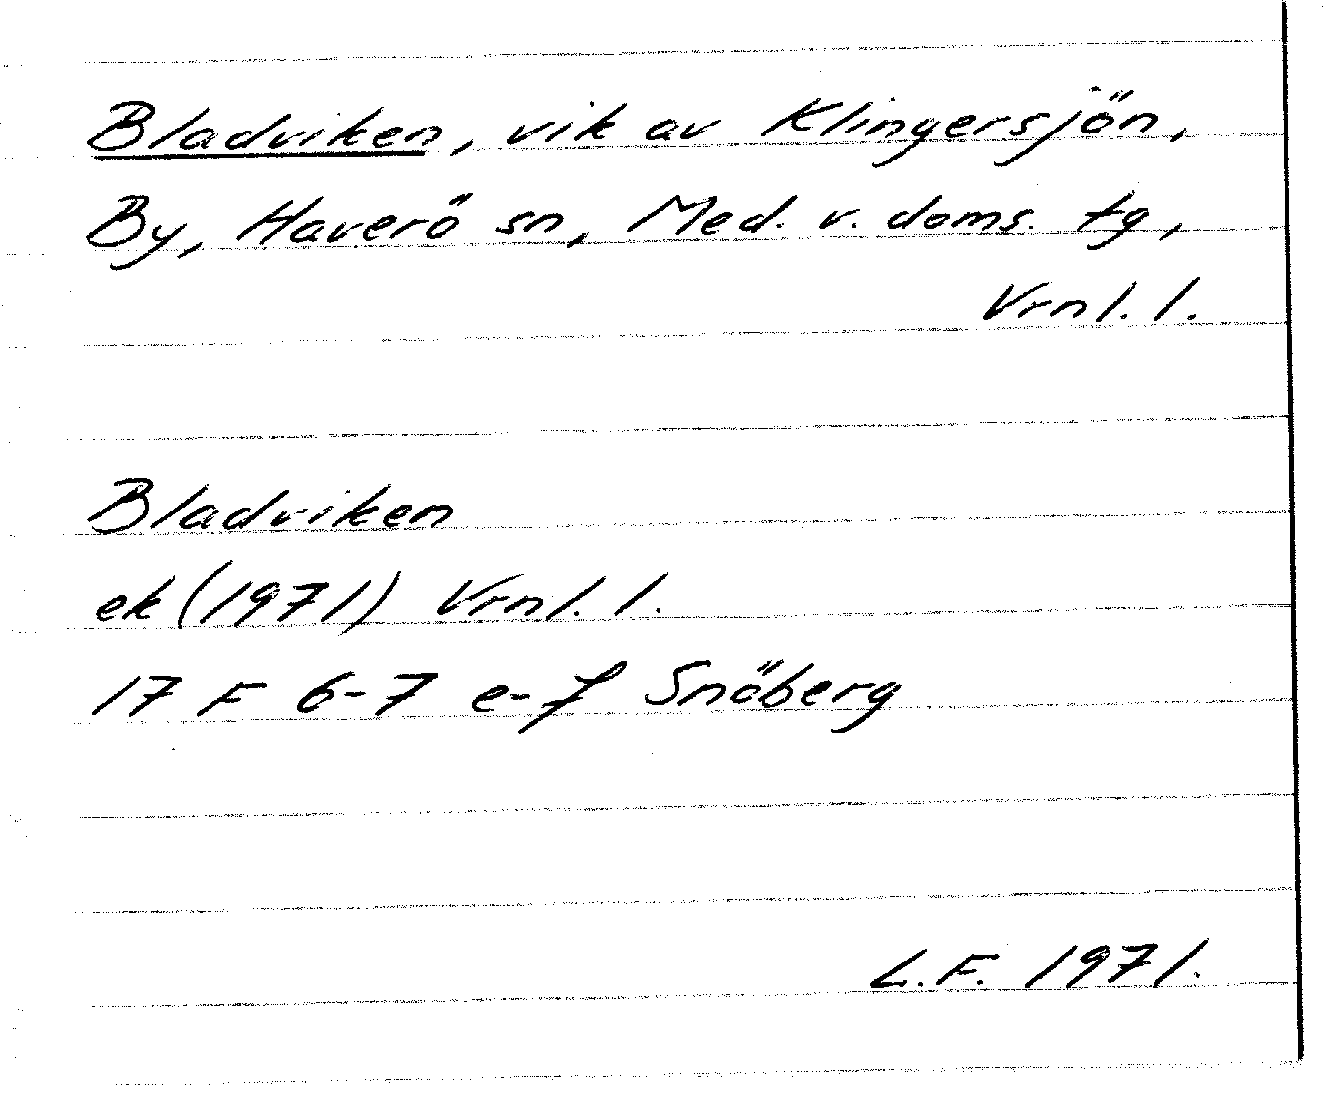 Bladviken, vik av Klingersjön,
By, Haverö sn, Med. v. doms. tg,
Vrnl. l.
Bladviken
ek (1971) Vrnl. l.
17 F 6-7 e-f Snöberg
L.F. 1971.